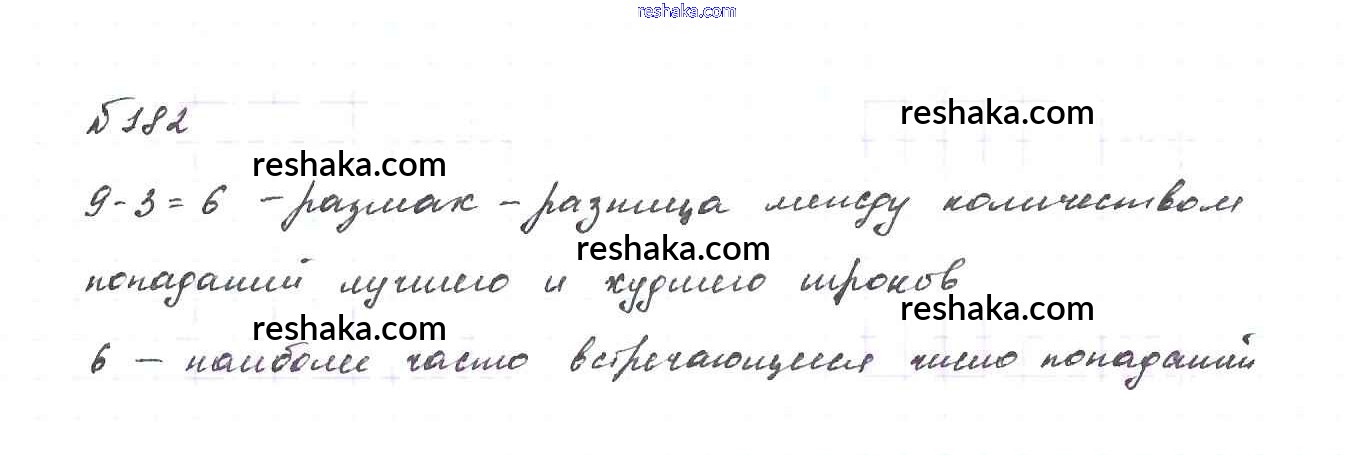 reshaka.com
№182
reshaka.com
reshaka.com
9-3=6 - размах - разница между количеством
reshaka.com
попаданий лучшего и худшего игроков
reshaka.com
reshaka.com
6 - наиболее часто встречающееся число попаданий